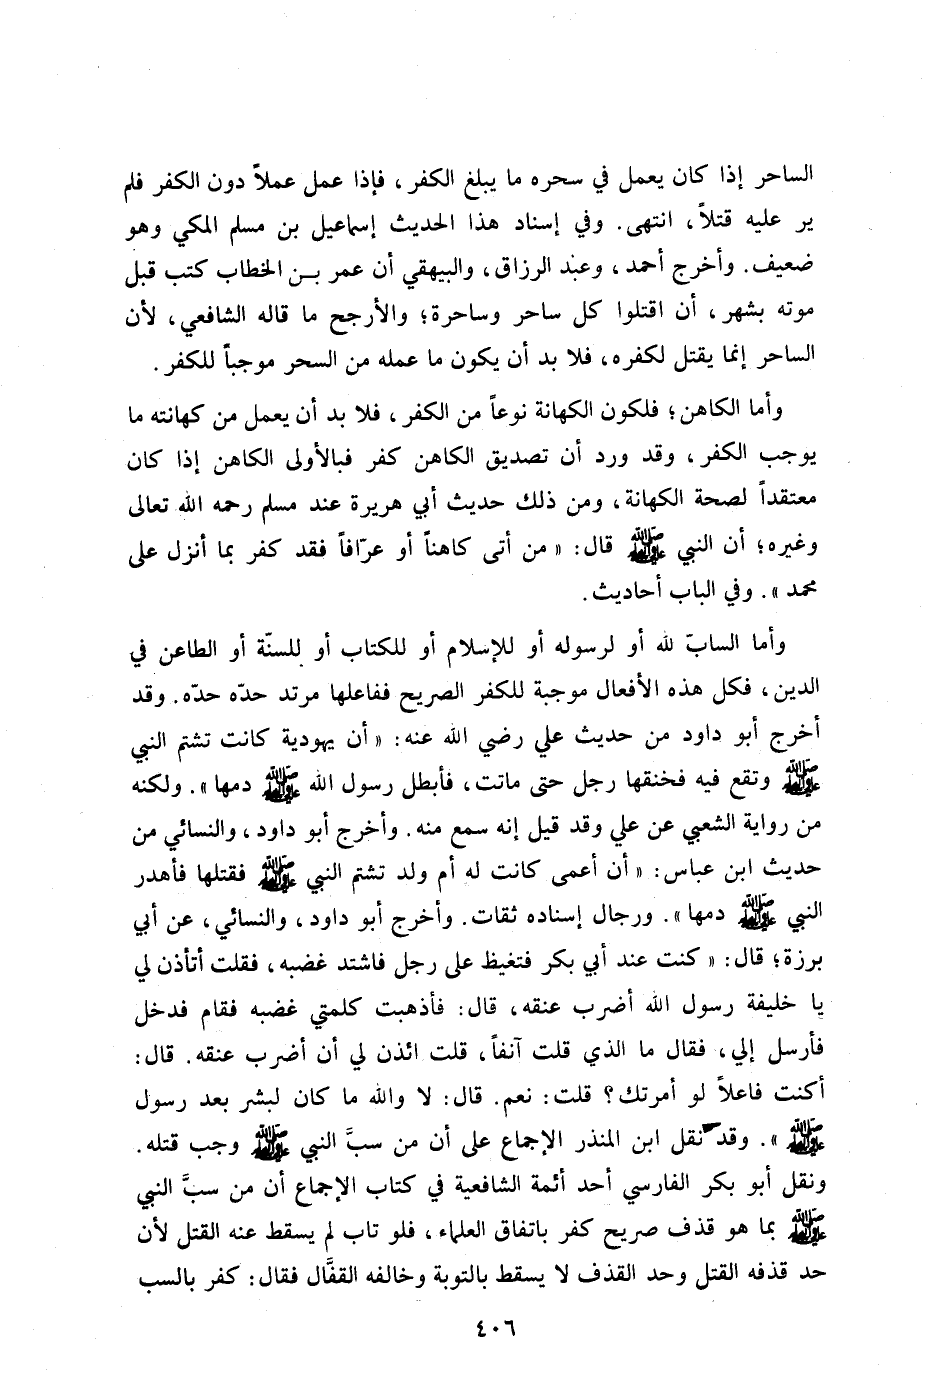 الساحر إذا كان يعمل في سحره ما يبلغ الكفر ، فإذا عمل عملاً دون الكفر فلم
ير عليه قتلاً ، انتهى . وفي إسناد هذا الحديث إسماعيل بن مسلم المكي وهو
ضعيف . وأخرج أحمد ، وعبد الرزاق ، والبيهقي أن عمر بـن الخطاب كتب قبل
موته بشهر ، أن اقتلوا كل ساحر وساحرة ؛ والأرجح ما قاله الشافعي ، لأن
الساحر إنما يقتل لكفره ، فلا بد أن يكون ما عمله من السحر موجباً للكفر .
وأما الكاهن ؛ فلكون الكهانة نوعاً من الكفر ، فلا بد أن يعمل من كهانته ما
يوجب الكفر ، وقد ورد أن تصديق الكاهن كفر فبالأولى الكاهن إذا كان
معتقداً لصحة الكهانة ، ومن ذلك حديث أبي هريرة عند مسلم رحمه الله تعالى
وغيره ؛ أن النبي ﷺ قال : « من أتى كاهناً أو عرّافاً فقد كفر بما أنزل على
محمد » . وفي الباب أحاديث .
وأما السابّ لله أو لرسوله أو للإسلام أو للكتاب أو للسنّة أو الطاعن في
الدين ، فكل هذه الأفعال موجبة للكفر الصريح ففاعلها مرتد حدّه حدّه . وقد
أخرج أبو داود من حديث علي رضي الله عنه : « أن يهودية كانت تشتم النبي
ﷺ وتقع فيه فخنقها رجل حتى ماتت ، فأبطل رسول الله ﷺ دمها » . ولكنه
من رواية الشعبي عن علي وقد قيل إنه سمع منه . وأخرج أبو داود ، والنسائي من
حديث ابن عباس : « أن أعمى كانت له أم ولد تشتم النبي ﷺ فقتلها فأهدر
النبي ﷺ دمها » . ورجال إسناده ثقات . وأخرج أبو داود ، والنسائي ، عن أبي
برزة ؛ قال : « كنت عند أبي بكر فتغيظ على رجل فاشتد غضبه ، فقلت أتأذن لي
يا خليفة رسول الله أضرب عنقه ، قال : فأذهبت كلمتي غضبه فقام فدخل
فأرسل إلي ، فقال ما الذي قلت آنفاً ، قلت ائذن لي أن أضرب عنقه . قال :
أكنت فاعلاً لو أمرتك ؟ قلت : نعم . قال : لا والله ما كان لبشر بعد رسول
ﷺ » . وقد نقل ابن المنذر الإجماع على أن من سبَّ النبي ﷺ وجب قتله .
ونقل أبو بكر الفارسي أحد أئمة الشافعية في كتاب الإجماع أن من سبَّ النبي
ﷺ بما هو قذف صريح كفر باتفاق العلماء ، فلو تاب لم يسقط عنه القتل لأن
حد قذفه القتل وحد القذف لا يسقط بالتوبة وخالفه القفَّال فقال : كفر بالسب
٤٠٦